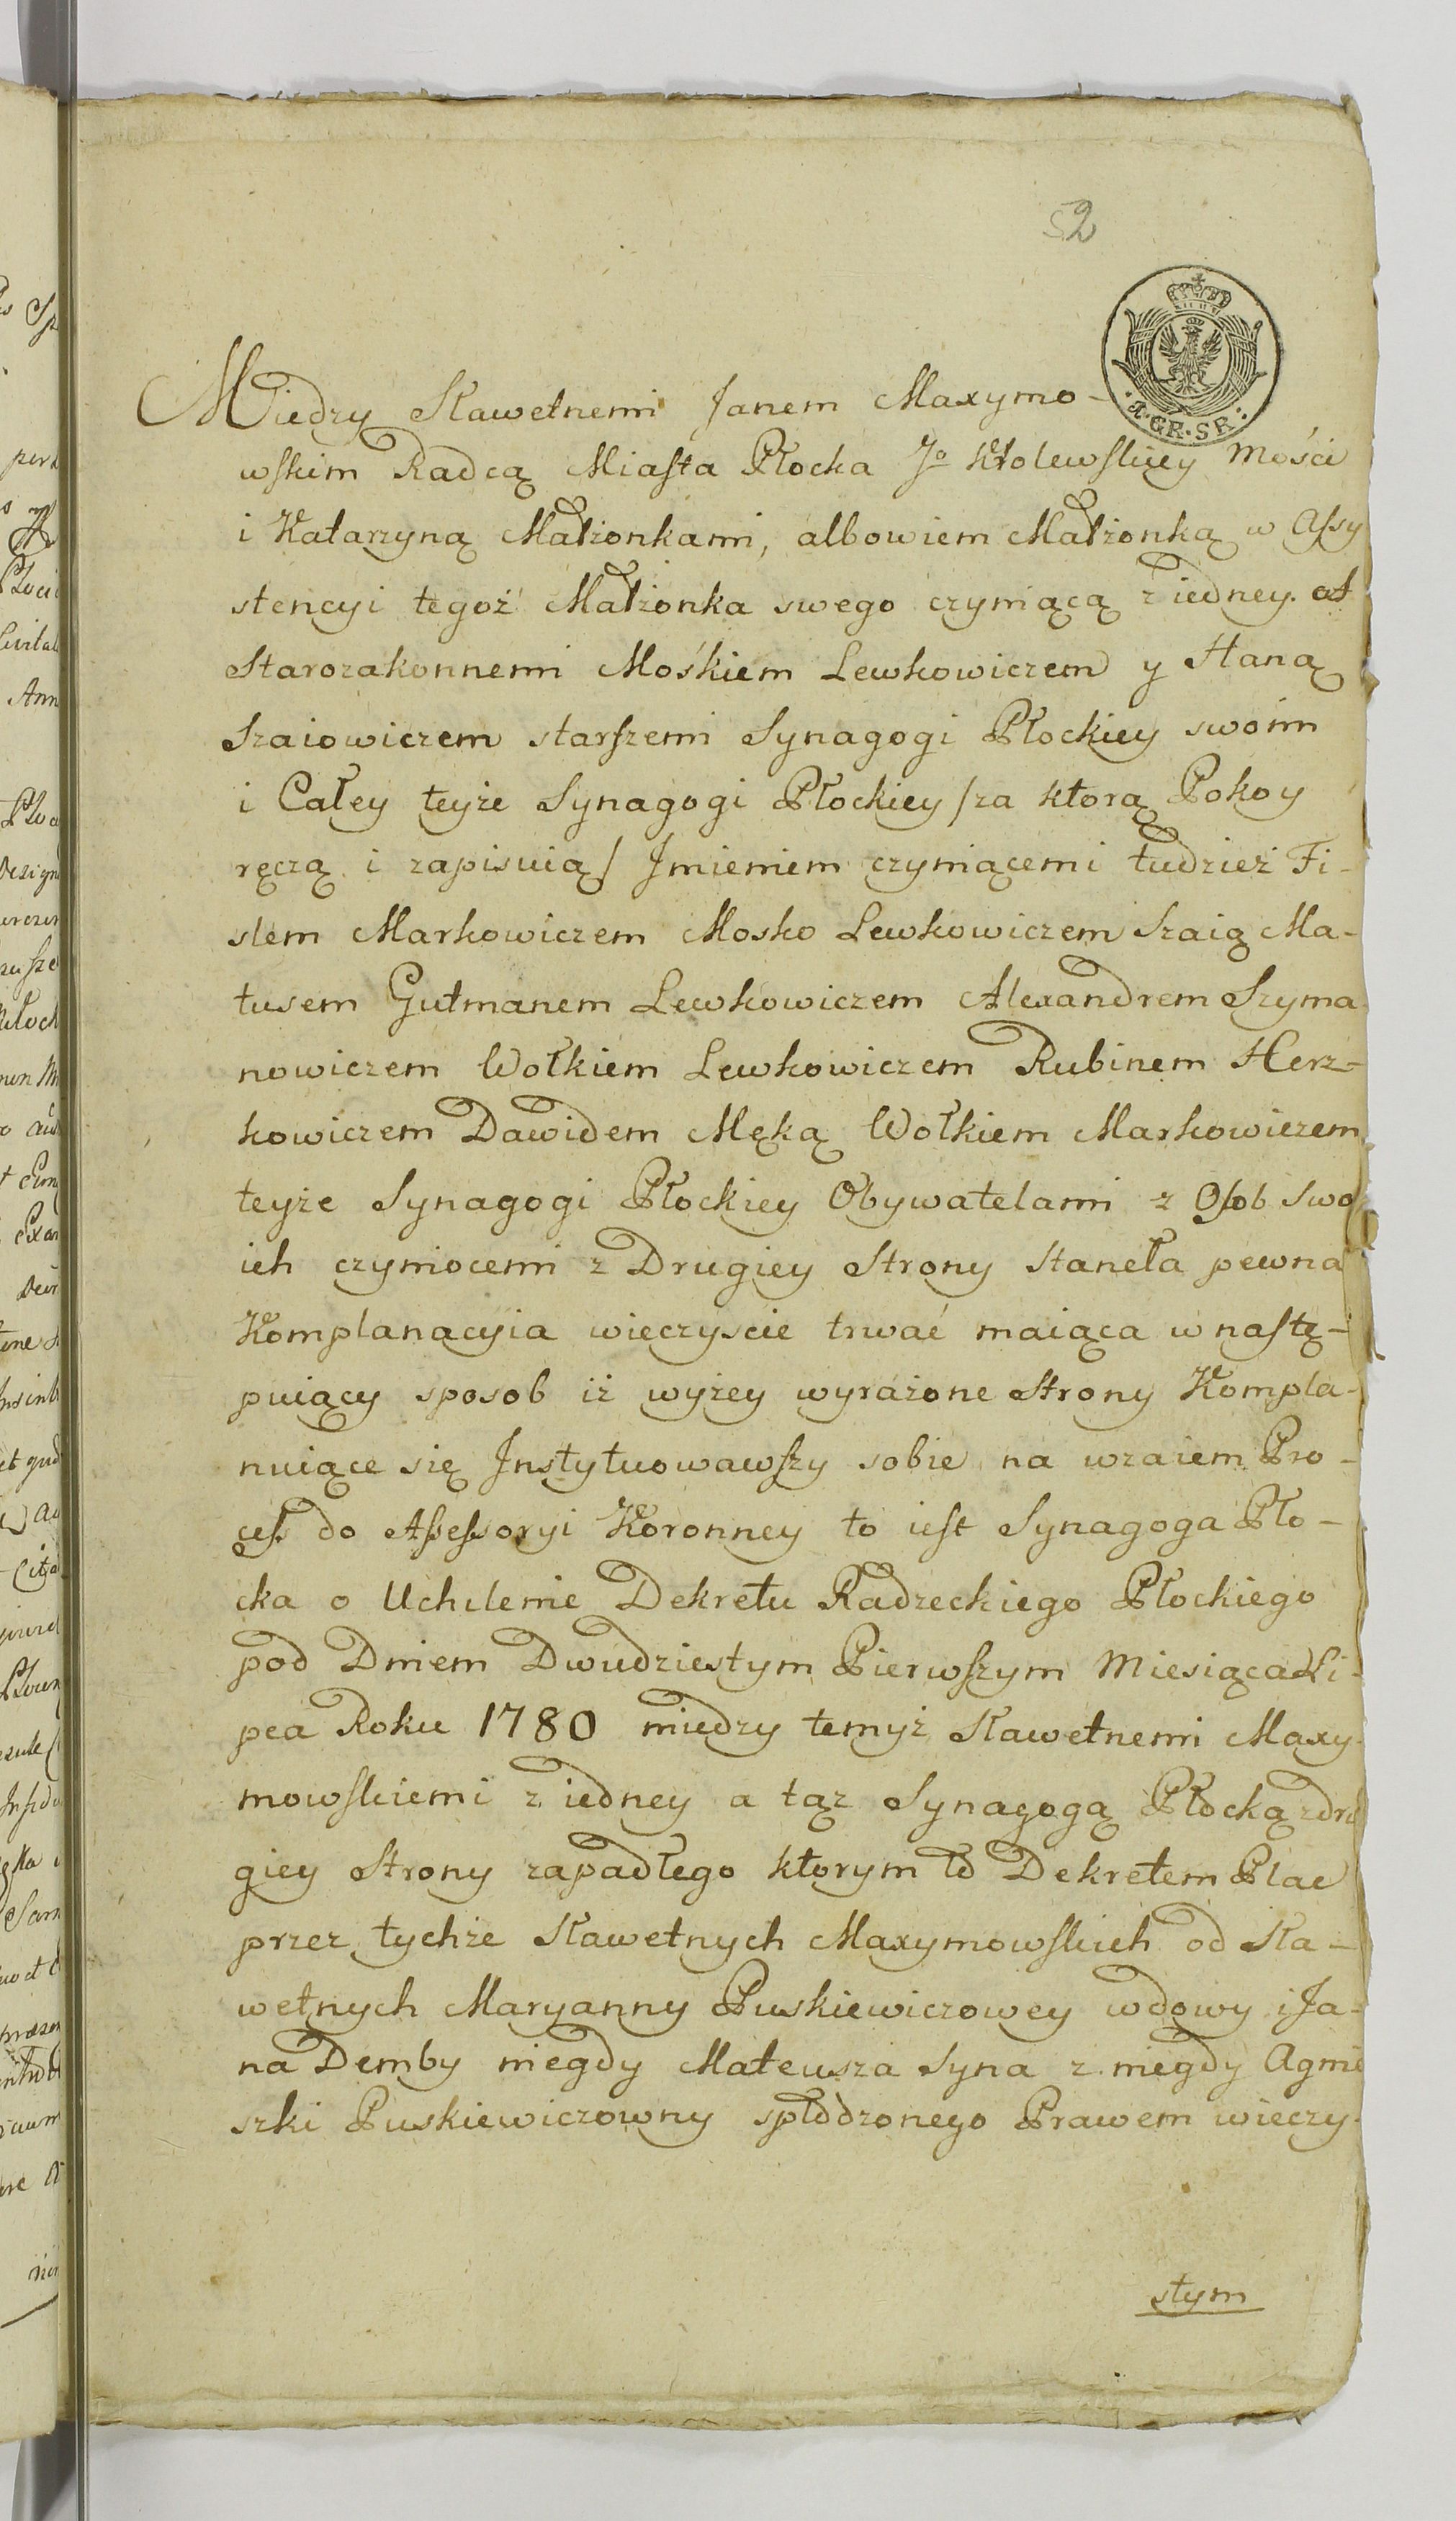 52
Miedzy Sławetnemi Janem Maxymo-
wskim Radcą Miasta Płocka Jo Krolewskiey Mości
i Katarzyną Małżonkami, albowiem Małżonką w Assy
stencyi tegoż Małżonka swego czyniącą z iedney. a
Starozakonnemi Mośkiem Lewkowiczem y Haną
Szaiowiczem starszemi Synagogi Płockiey swoim
i Całey teyże Synagogi Płockiey /za ktorą Pokoy
ręczą i zapisuią/ Jmieniem czyniącemi tudzież Fi-
slem Markowiczem Mosko Lewkowiczem Szaią Ma-
tusem Gutmanem Lewkowiczem Alexandrem Szyma
nowiczem Wołkiem Lewkowiczem Rubinem Herz-
kowiczem Dawidem Męką Wołkiem Markowiczem
teyże Synagogi Płockiey Obywatelami z Osob Swo
ich czyniocemi z Drugiey Strony Staneła pewna
Komplanacyia wieczyscie trwać maiąca w nastę-
puiący sposob iż wyżey wyrażone Strony Kompla-
nuiące się Jnstytuowawszy sobie na wzaiem Pro-
cess do Assessoryi Koronney to iest Synagoga Pło-
cka o Uchilenie Dekretu Radzeckiego Płockiego
pod Dniem Dwudziestym Pierwszym Miesiąca Li-
pca Roku 1780 miedzy temyż Sławetnemi Maxy-
mowskiemi z iedney a tąz Synagogą Płocką z dru
giey Strony zapadłego ktorym to Dekretem Plac
przez tychże Sławetnych Maxymowskich od Sła-
wetnych Maryanny Puskiewiczowey wdowy i Ja-
na Demby niegdy Mateusza Syna z niegdy Agnie
szki Puskiewiczowny spłodzonego Prawem wieczy-
stym